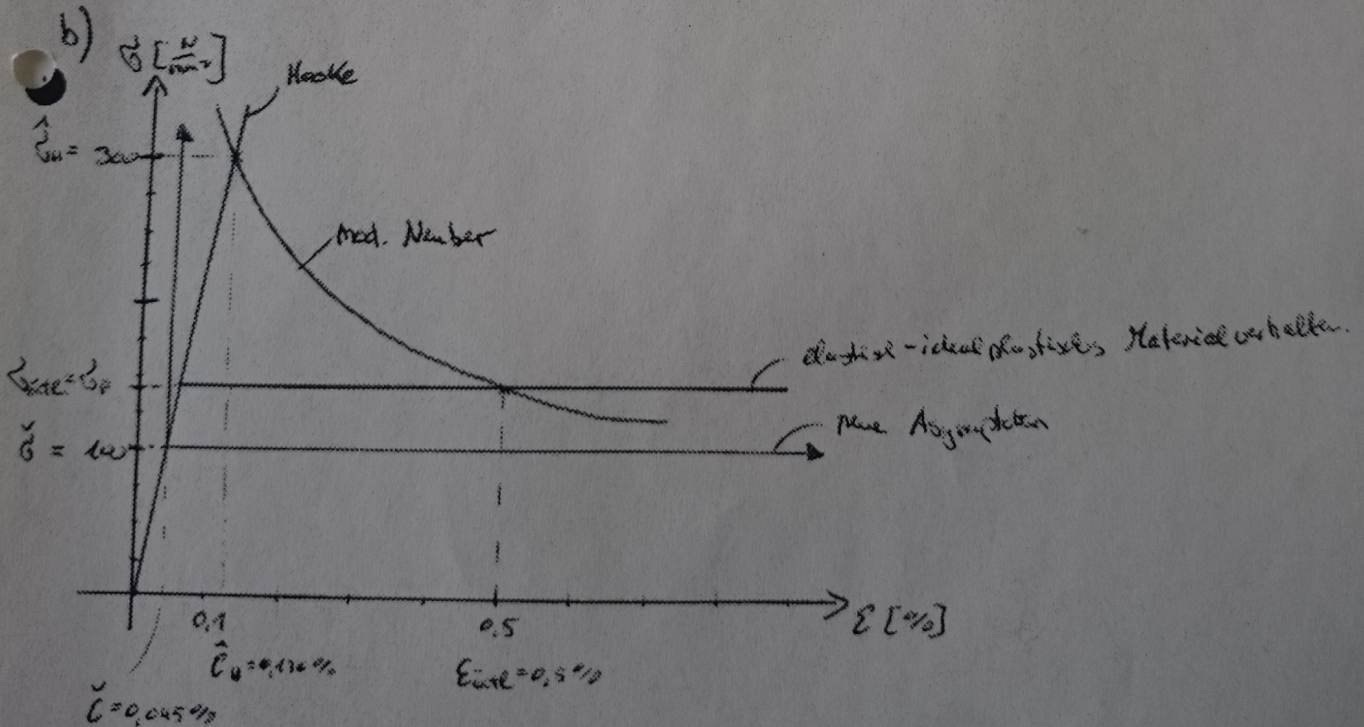 b)
σ [N/mm²]
Hooke
σ̂H = 300
mod. Neuber
elastisch-idealplastisches Materialverhalten
σ̌ = 100
neue Asymptoten
0,1
0,5
ε [%]
ε̂H = 0,136 %
ε̌ = 0,045 %